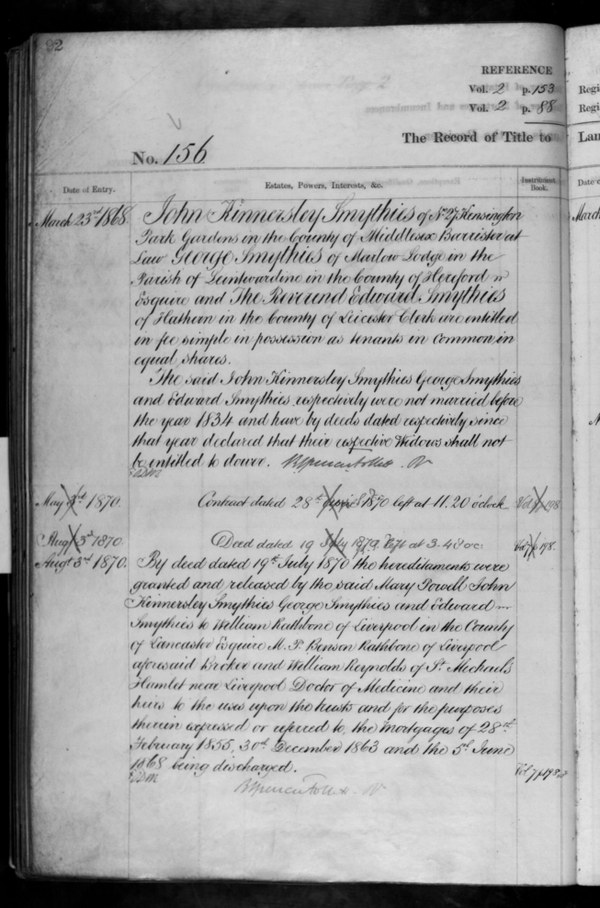 92
REFERENCE
Vol. 2 p. 153
Vol. 2 p. 88
The Record of Title to
No. 156
Date of Entry.
Estates, Powers, Interests, &c.
Instrument Book.
March 23rd 1868.
John Kinnersley Smythies of No. 27 Kensington
Park Gardens in the County of Middlesex Barrister at
Law George Smythies of Marlow Lodge in the
Parish of Leintwardine in the County of Hereford
Esquire and The Reverend Edward Smythies
of Hathern in the County of Leicester Clerk are entitled
in fee simple in possession as tenants in common in
equal shares.
The said John Kinnersley Smythies George Smythies
and Edward Smythies respectively were not married before
the year 1834 and have by deeds dated respectively since
that year declared that their respective Widows shall not
be entitled to dower.
May 1870.
Contract dated 28th 1870 left at 11.20 o'clock
Augt 3d 1870
Deed dated 19 July 1870 left at 3.4
Augt 3rd 1870.
By deed dated 19th July 1870 the hereditaments were
granted and released by the said Mary Powell John
Kinnersley Smythies George Smythies and Edward
Smythies to William Rathbone of Liverpool in the County
of Lancaster Esquire M. P. Benson Rathbone of Liverpool
aforesaid Broker and William Reynolds of St. Michael's
Hamlet near Liverpool Doctor of Medicine and their
heirs to the uses upon the trusts and for the purposes
therein expressed or referred to, the mortgages of 28th
February 1855, 30th December 1863 and the 5th June
1868 being discharged.
Regi
Regi
Lan
Date
March